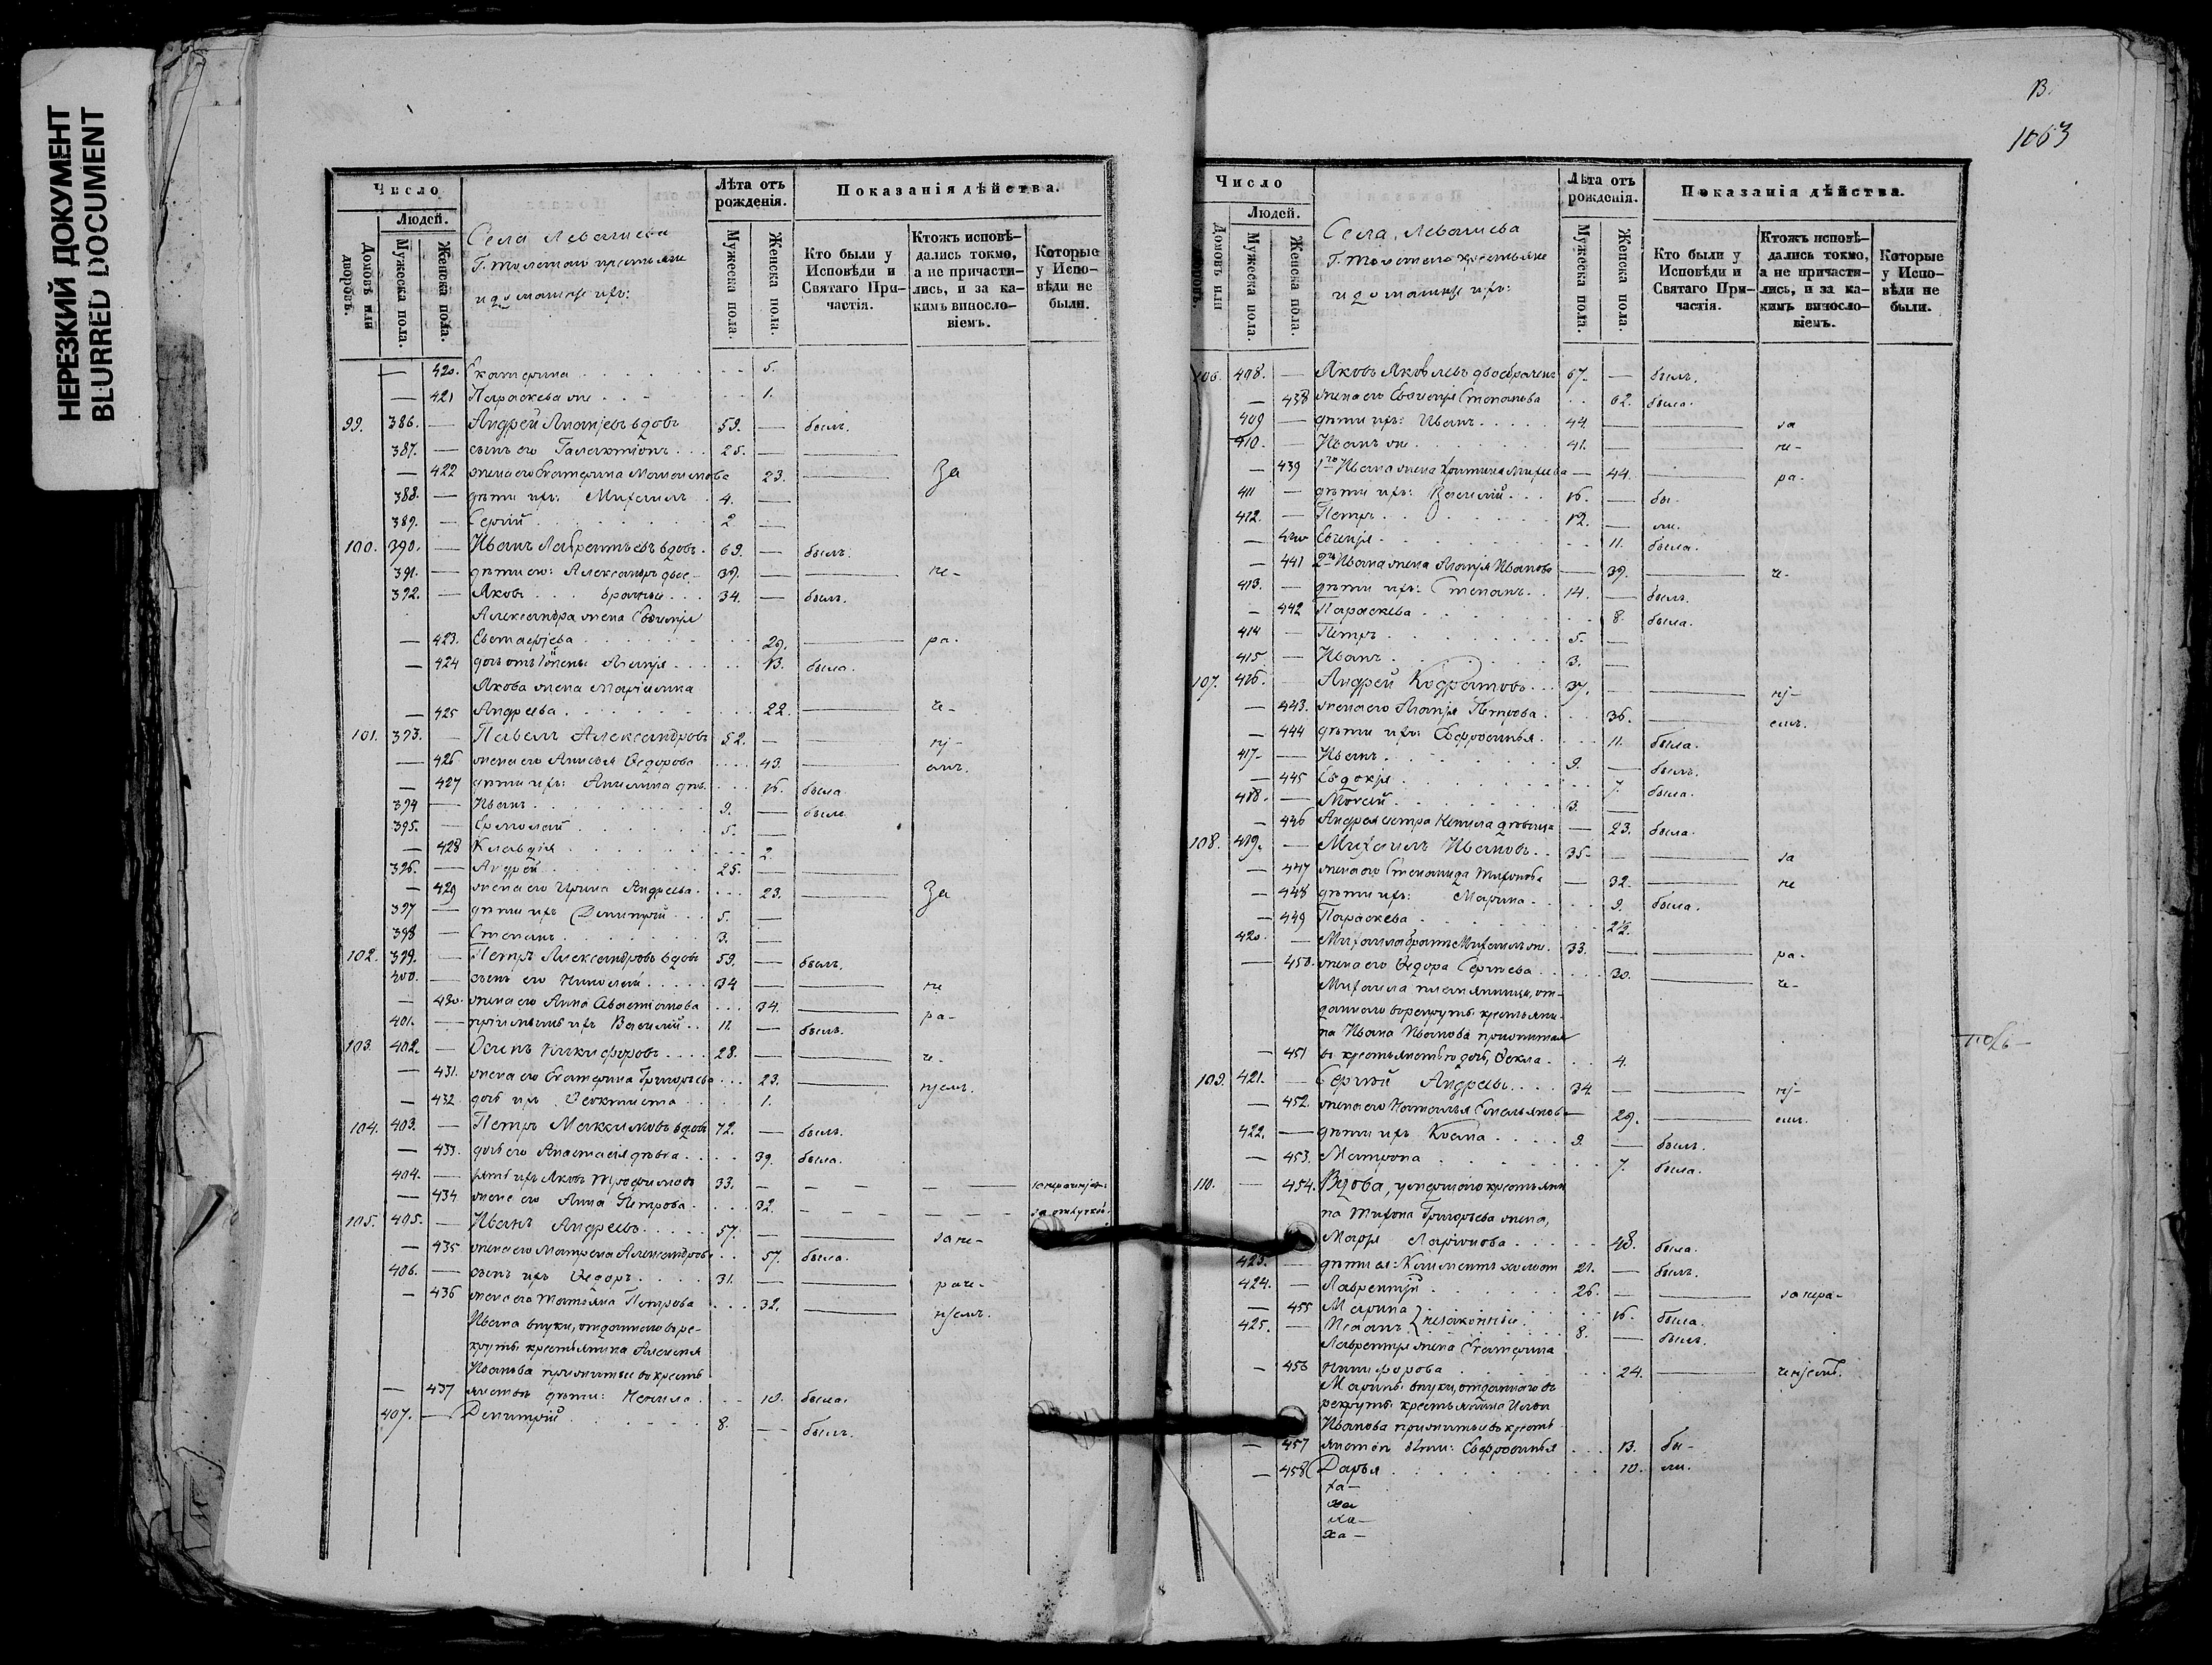 НЕРЕЗКИЙ ДОКУМЕНТ
BLURRED DOCUMENT
Число
Людей.
Домовъ или дворовъ.
Мужеска пола.
Женска пола.
Села Левашева
Г. Толстаго крестьяне
и домашніе ихъ:
Лѣта отъ рожденія.
Мужеска пола.
Женска пола.
Показанія дѣйства.
Кто были у Исповѣди и Святаго Причастія.
Ктожъ исповѣдались токмо, а не причастились, и за какимъ винословіемъ.
Которые у Исповѣди не были.
— 420. Екатерина 5.
— 421 Параскева же 1.
99. 386. — Андрей Ананіевъ вдовъ 59. — былъ.
387. — сынъ его Галактіонъ 25. —
— 422 жена его Екатерина 23. За
388. — дѣти ихъ: Михаилъ 4. —
389. — Сергій 2 —
100. 390. — Иванъ Лаврентьевъ вдовъ 69. — былъ.
391. — дѣти его: Александръ двое- 39. — не-
392. — Яковъ брачные 34. — былъ.
Александра жена Евгенія
— 423. Евстафіева 29. ра-
— 424 дочь отъ 1й жены Агапія 13. была.
Якова жена Маріамна
— 425 Андреева 22. че-
101. 393. — Павелъ Александровъ 52. — ні-
— 426 жена его Анисья Ѳедорова 43. емъ.
— 427 дѣти ихъ: Акилина дѣв. 16. была
394 — Иванъ 9. — былъ
395. — Ермолай 5. —
— 428 Клавдія 2.
396. — Андрей 25. —
— 429 жена его Ирина Андреева 23. За
397 — дѣти ихъ Димитрій 5. —
398 — Степанъ 3. —
102. 399. — Петръ Александровъ вдовъ 59. — былъ.
400. — сынъ его Николай 34 — не
— 430. жена его Анна 34. ра-
401. — ихъ Василій 11. — былъ.
103. 402. — Осипъ Никифоровъ 28. — че-
— 431. жена его Екатерина Григорьева 23. ніемъ.
— 432 дочь ихъ Ѳеоктиста 1.
104. 403. — Петръ Максимовъ вдовъ 72. — былъ.
— 433. дочь его Анастасія дѣвка 39. была.
404. — зять ихъ Яковъ Трофимовъ 33. —
— 434 жена его Анна Петрова 32. за отлучкой.
105. 405. — Иванъ Андреевъ 57. — за не-
— 435 жена его Матрена Александрова 57. была.
406. — сынъ ихъ Ѳедоръ 31. — раче-
— 436 жена его Татьяна Петрова 32. ніемъ.
Ивана внуки, отданнаго въ ре-
круты крестьянина Алексея
Иванова прижитые въ кресть
— 437 янствѣ дѣти: Ненила 10. была.
407. — Димитрій 8. — былъ.
13.
1063
Число
Людей.
Домовъ или дворовъ.
Мужеска пола.
Женска пола.
Села Левашева
Г. Толстаго крестьяне
и домашніе ихъ:
Лѣта отъ рожденія.
Мужеска пола.
Женска пола.
Показанія дѣйства.
Кто были у Исповѣди и Святаго Причастія.
Ктожъ исповѣдались токмо, а не причастились, и за какимъ винословіемъ.
Которые у Исповѣди не были.
106. 408. — Яковъ Яковлевъ двоебраченъ 67. — былъ.
— 438 жена его Евгенія Степанова 62. была.
409 — дѣти ихъ: Иванъ 44. — за
410. — Иванъ же 41. — не-
— 439 1го Ивана жена 44. ра-
411 — дѣти ихъ: Василій 16. — бы-
412. — Петръ 12. — ли.
— 440 Евгенія 11. была.
— 441 2го Ивана жена Агапія Иванова — 39. че-
413. — дѣти ихъ: Степанъ 14. — былъ.
— 442 Параскева 8. была.
414 — Петръ 5. —
415. — Иванъ 3. —
107. 416. — Андрей Кодратовъ 37. — ні-
— 443. жена его Агапія Петрова 36. емъ.
— 444 дѣти ихъ: Евфросинья 11. была.
417. — Иванъ 9. — былъ.
— 445 Евдокія 7. была.
418. — Моисей 3. —
— 446 Андрея сестра Ненила дѣвица — 23. была.
108. 419. — Михаилъ Ивановъ 35. — за
— 447 жена его Степанида Тихонова — 32. не
— 448 дѣти ихъ: Марина 9. была.
— 449 Параскева 2½.
420. — Михаила братъ Михаилъ же 33. — ра-
— 450. жена его Ѳедора Сергеева 30. че-
Михаила племянница, от-
даннаго въ рекруты крестьяни-
на Ивана Иванова прижитая
— 451 въ крестьянствѣ дочь, Ѳекла 4.
109. 421. — Сергей Андреевъ 34 — ні-
— 452. жена его Наталья Емельянова 29. емъ.
422. — дѣти ихъ Косма 9. — былъ.
— 453. Матрона 7. была.
110. — 454. Вдова, умершаго крестьяни
на Тихона Григорьева жена,
Марѳа Ларіонова 48. была.
423. — дѣти ея: Климентъ холост 21. — былъ.
424. — Лаврентій 26. — за нера-
— 455 Марина } незаконные 16. была.
425. — 8. — былъ.
Лаврентія жена Екатерина
— 456 Никифорова 24. ченіемъ.
Марины внуки, отданнаго въ
рекруты крестьянина
Иванова прижитые въ кресть
— 457 янствѣ дѣти: Евфросинья 13. бы-
— 458 Дарья 10. ли.